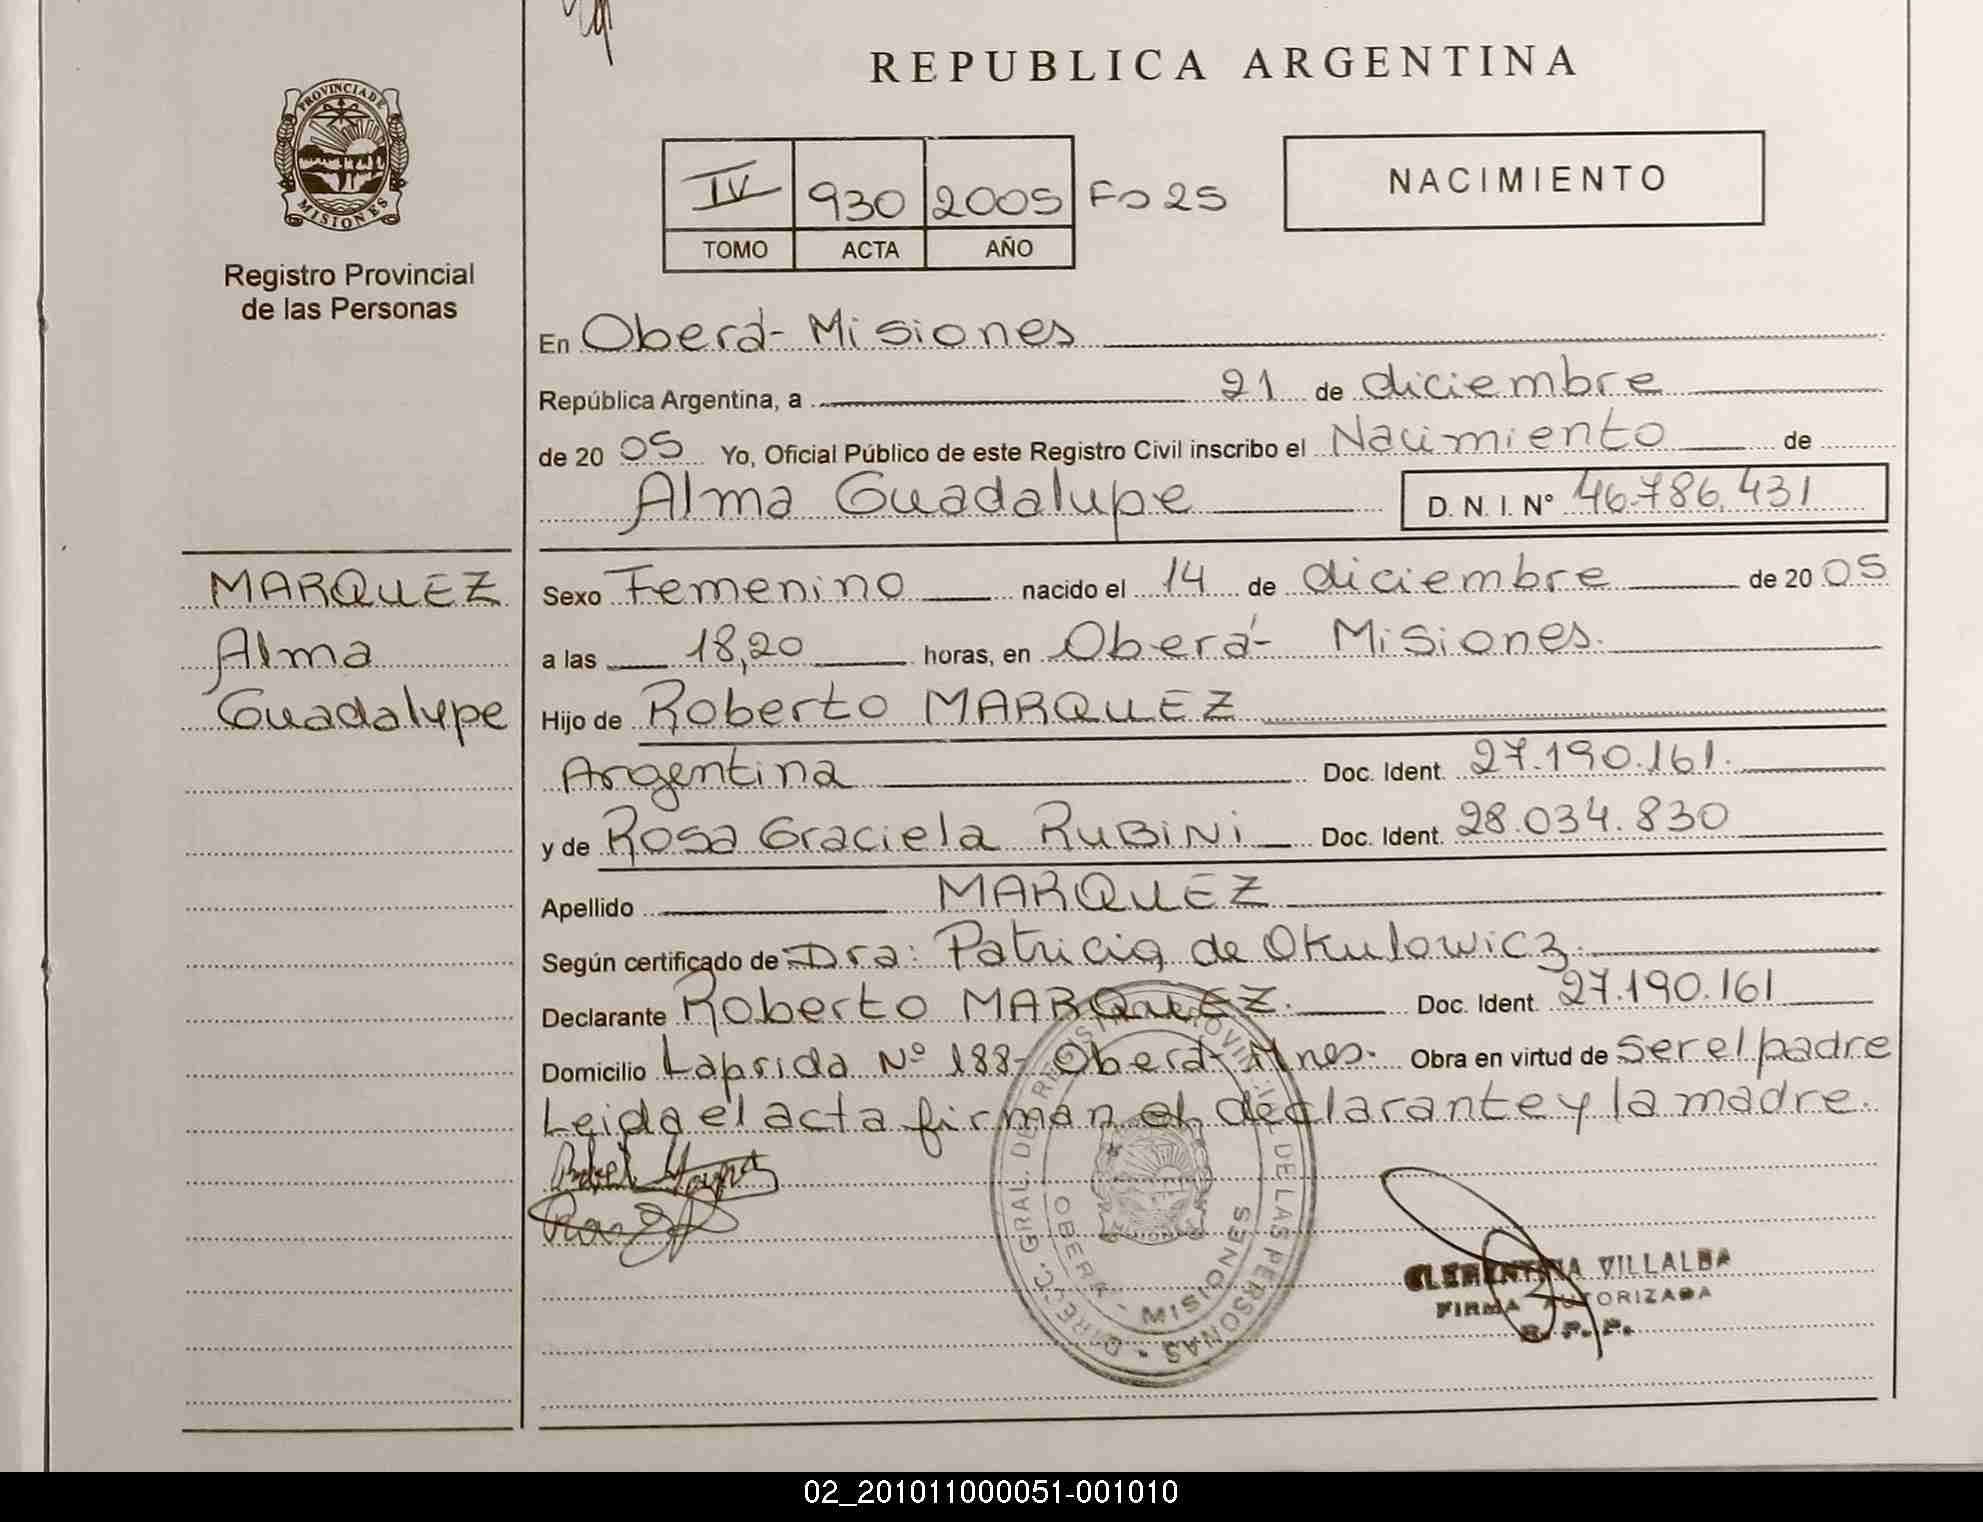 REPUBLICA ARGENTINA
PROVINCIA DE MISIONES
Registro Provincial
de las Personas
IV 930 2005 Fo 25
TOMO ACTA AÑO
NACIMIENTO
En Oberá - Misiones
República Argentina, a 21 de diciembre
de 20 05 Yo, Oficial Público de este Registro Civil inscribo el Nacimiento de
Alma Guadalupe D. N. I. N° 46.786.431
MARQUEZ
Alma
Guadalupe
Sexo Femenino nacido el 14 de diciembre de 20 05
a las 18,20 horas, en Oberá - Misiones.
Hijo de Roberto MARQUEZ
Argentina Doc. Ident. 27.190.161.
y de Rosa Graciela RUBINI Doc. Ident. 28.034.830
Apellido MARQUEZ
Según certificado de Dra: Patricia de Okulowicz.
Declarante Roberto MARQUEZ. Doc. Ident. 27.190.161
Domicilio Laprida Nº 188 - Oberá - Mnes. Obra en virtud de ser el padre
Leida el acta firman el declarante y la madre.
DIRECC. GRAL. DE REGISTRO PROVINCIAL DE LAS PERSONAS
OBERA - MISIONES
CLEMENTINA VILLALBA
FIRMA AUTORIZADA
R. P. P.
02_201011000051-001010